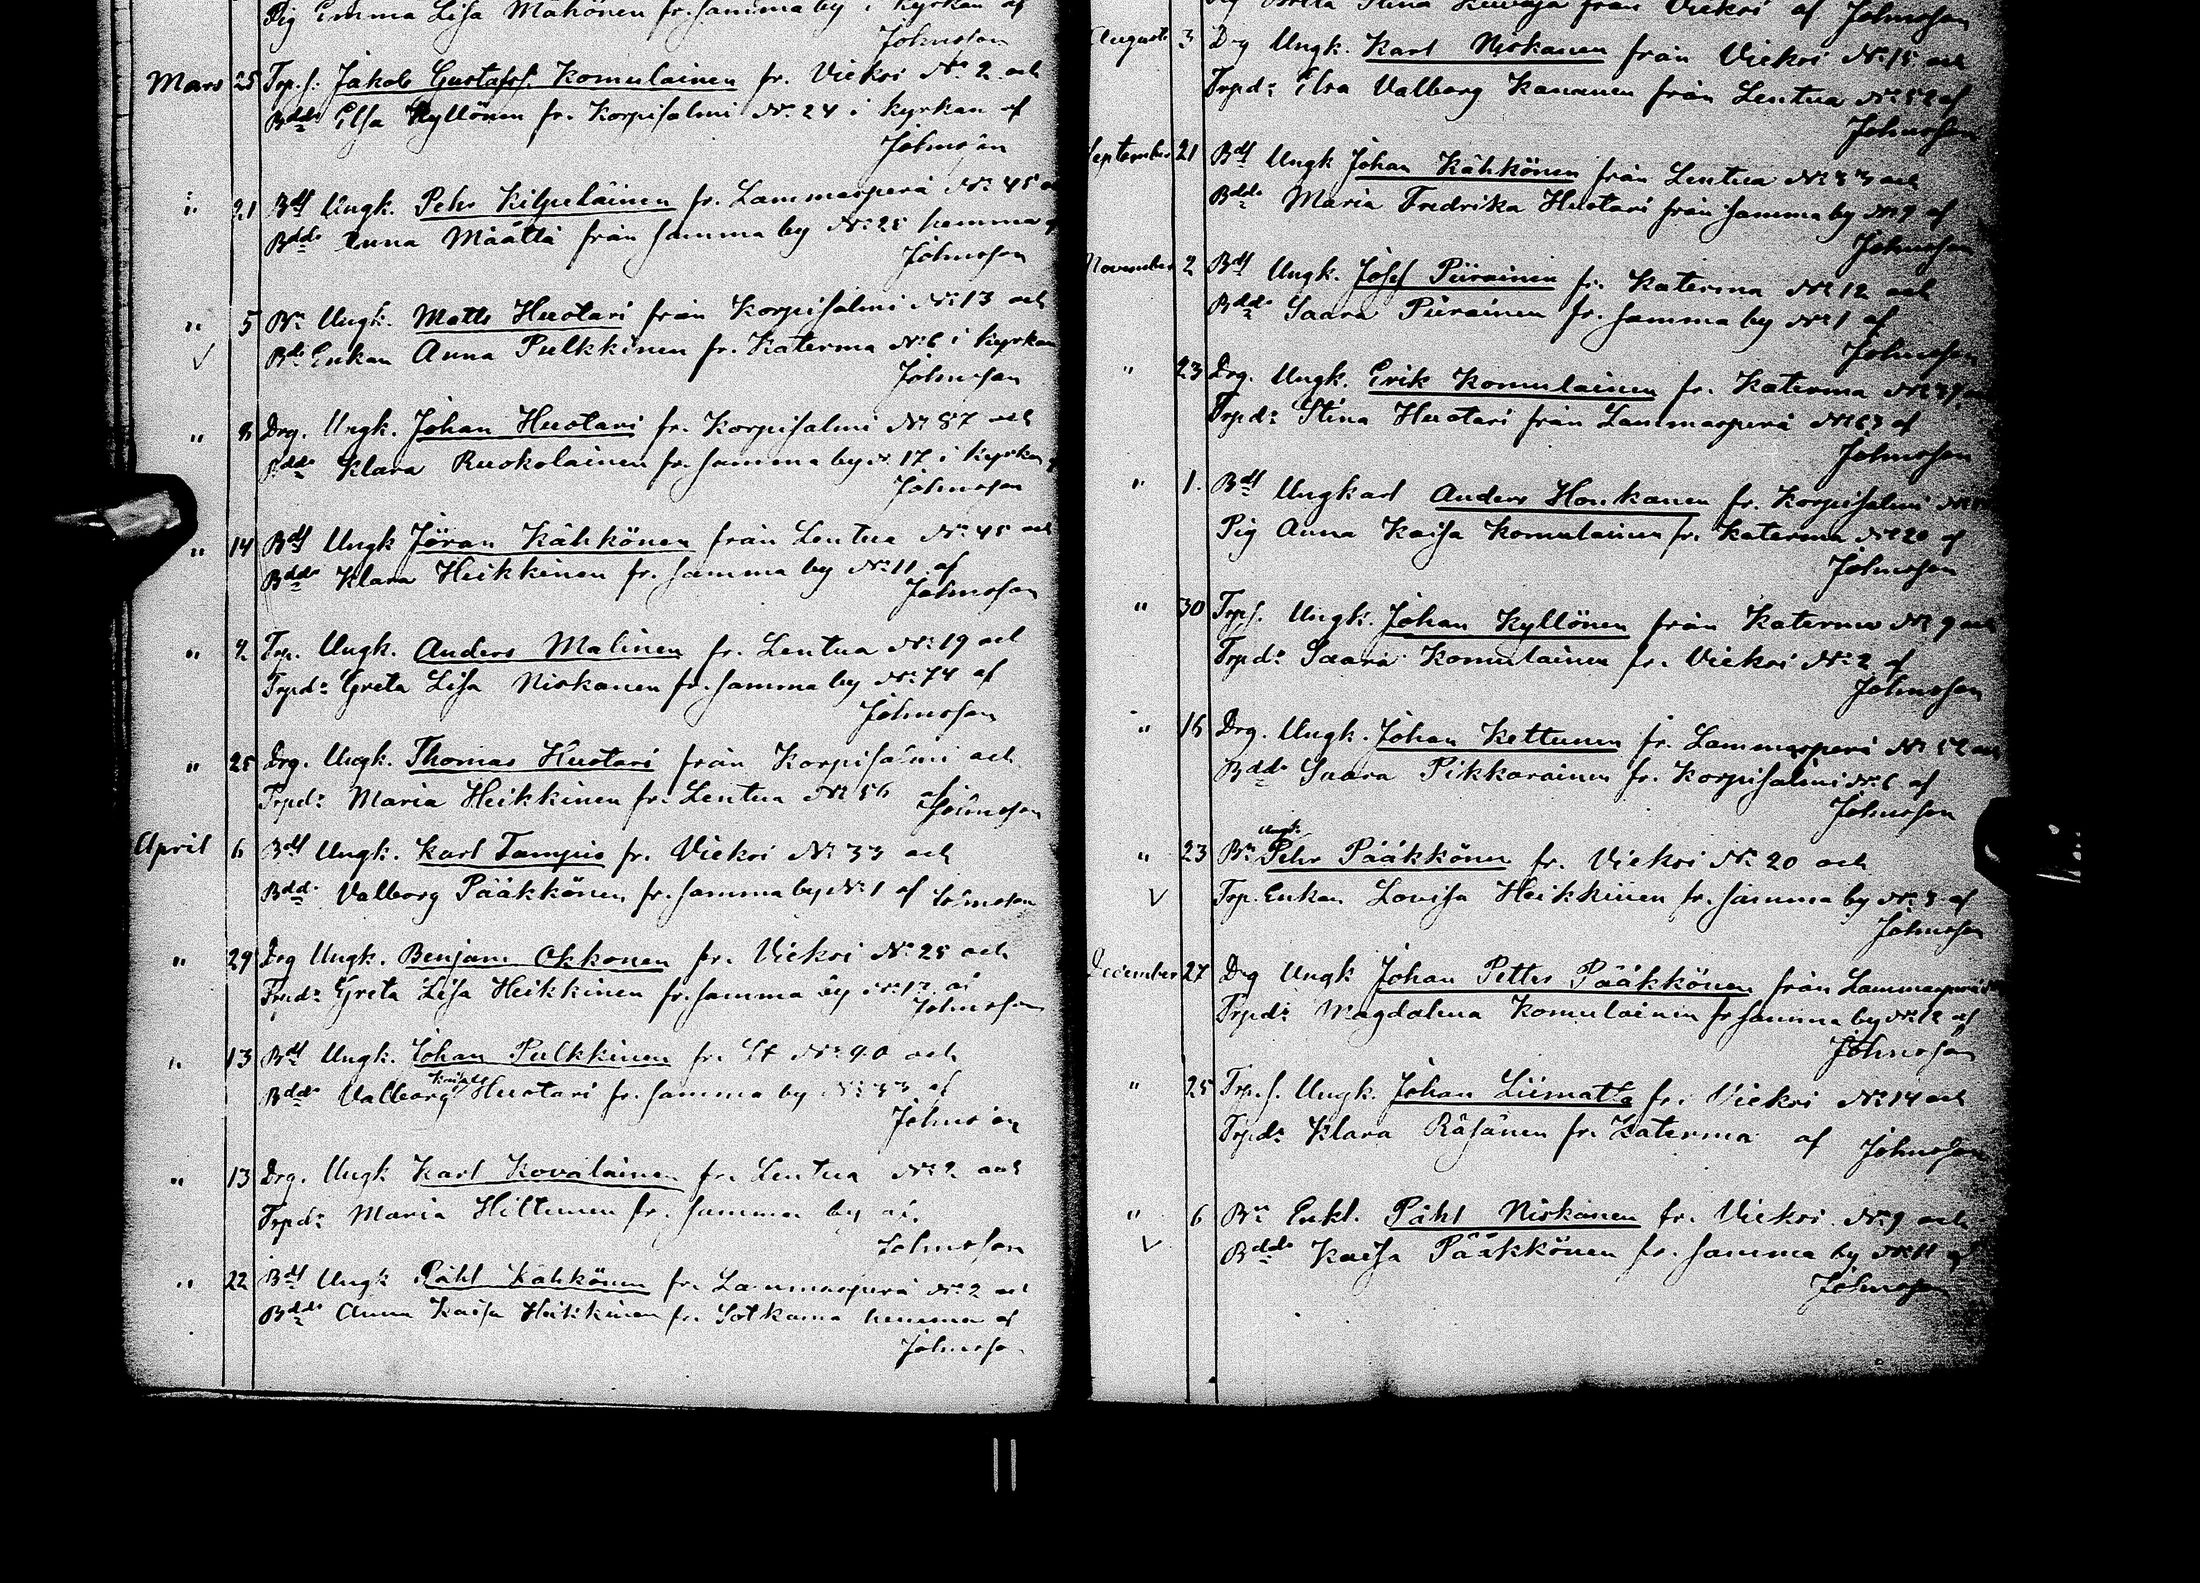 Pig Emma Lisa Mähönen fr. samma by i kyrkan af
Johnsson
Mars 25 Trp.s. Jakob Gustafss. Komulainen fr. Vieksi No 2 och
Bdd. Elsa Kyllönen fr. Korpisalmi No 24 i kyrkan af
Johnsson
" 21 Bds Ungk. Pehr Kilpeläinen fr. Lammasperä No 45
Bdd. Anna Määttä från samma by No 25 hemma
Johnsson
" 5 Bn Ungk. Matts Huotari från Korpisalmi No 13 och
Bde Enkan Anna Pulkkinen fr. Katerma No 6 i kyrkan
Johnsson
" 8 Drg. Ungk. Johan Huotari fr. Korpisalmi No 87 och
Bdd. Klara Ruokolainen fr. samma by N. 17 i kyrkan
Johnsson
" 14 Bds Ungk Jöran Kähkönen från Lentua No 45 och
Bdd. Klara Heikkinen fr. samma by No 11 af
Johnsson
" Trp. Ungk. Anders Malinen fr. Lentua No 19 och
Trpdr Greta Lisa Niskanen fr. samma by No 74 af
Johnsson
" 25 Drg. Ungk. Thomas Huotari från Korpisalmi och
Trpdr Maria Heikkinen fr. Lentua No 56 af
Johnsson
April 6 Bds Ungk. Karl Tampio fr. Vieksi No 33 och
Bdd. Valborg Pääkkönen fr. samma by No 1 af Johnsson
" 29 Drg Ungk. Benjam Okkonen fr. Vieksi No 25 och
Trpdr Greta Lisa Heikkinen fr. samma by No 12 af
Johnsson
" 13 Bds Ungk. Johan Pulkkinen fr. No 40 och
Bdd. Valborg Huotari fr. samma by No 33 af
Johnsson
" 13 Drg. Ungk Karl Kovalainen fr. Lentua No 2 och
Trpdr Maria Hiltunen fr. samma by af
Johnsson
" 22 Bds Ungk Påhl Kähkönen fr. Lammasperä No 2 och
Bdd. Anna Kaisa Heikkinen fr. Sotkamo hemma af
Johnsson
Stina från Vieksi af Johnsson
Augusti 3 Drg Ungk. Karl Niskanen från Vieksi No 15 och
Trpdr Elsa Valborg Kananen från Lentua No 52 af
Johnsson
September 21 Bds Ungk Johan Kähkönen från Lentua No 33 och
Bdd. Maria Fredrika Huotari från samma by No 9 af
Johnsson
November 2 Bds Ungk. Josef Piirainen fr. Katerma No 12 och
Bdd. Saara Piirainen fr. samma by No 1 af
Johnsson
" 23 Drg. Ungk. Erik Komulainen fr. Katerma No 39
Trpdr Stina Huotari från Lammasperä No 63 af
Johnsson
" 1. Bds Ungkarl Anders Honkanen fr. Korpisalmi
Pig Anna Kaisa Komulainen fr. Katerma No 20 af
Johnsson
" 30 Trps. Ungk. Johan Kyllönen från Katerma No 9 och
Trpdr Saara Komulainen fr. Vieksi No 2 af
Johnsson
" 16 Drg. Ungk. Johan Kettunen fr. Lammasperä No 52 och
Bdd. Saara Pikkarainen fr. Korpisalmi No 6 af
Johnsson
Ungk.
" 23 Bn Pehr Pääkkönen fr. Vieksi No 20 och
Trp. Enkan Lovisa Heikkinen fr. samma by No 3 af
Johnsson
December 27 Drg Ungk Johan Petter Pääkkönen från Lammasperä
Trpdr Magdalena Komulainen fr samma by No 12 af
Johnsson
" 25 Trp.s. Ungk. Johan Liimatta fr. Vieksi No 14 och
Trpdr Klara Räsänen fr. Katerma af Johnsson
" 6 Bn Enkl. Påhl Niskanen fr. Vieksi No 9 och
Bdd. Kaisa Pääkkönen fr. samma by No 11 af
Johnsson